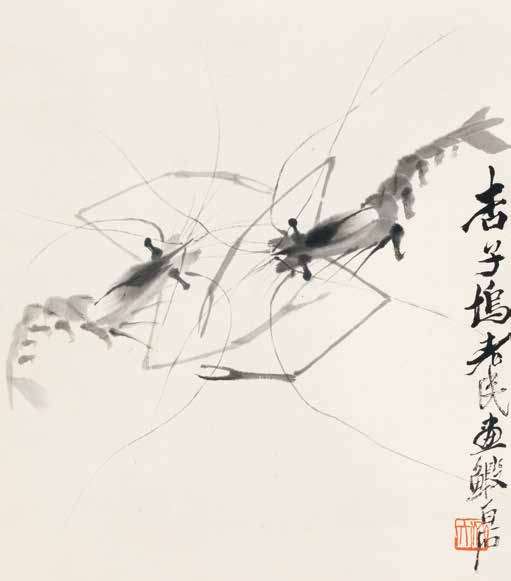 杏子塢老民畫鰕白石